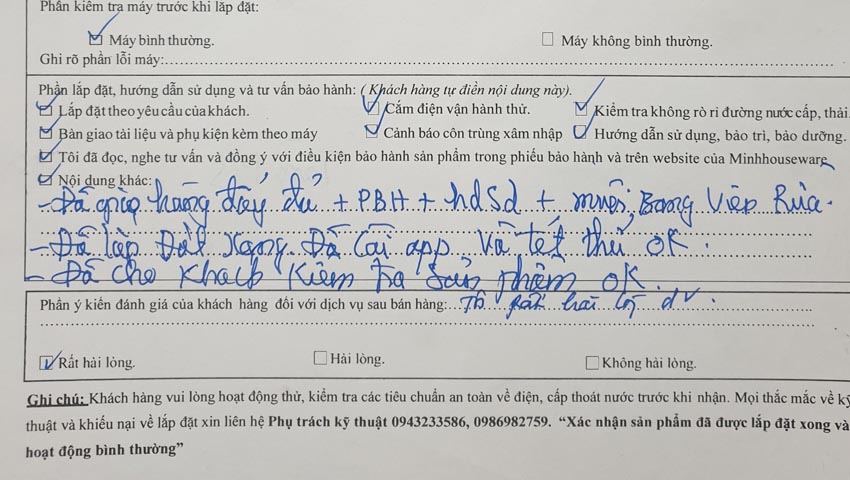 Phần kiểm tra máy trước khi lắp đặt:
Máy bình thường. Máy không bình thường.
Ghi rõ phần lỗi máy:
Phần lắp đặt, hướng dẫn sử dụng và tư vấn bảo hành: ( Khách hàng tự điền nội dung này).
Lắp đặt theo yêu cầu của khách. Cắm điện vận hành thử. Kiểm tra không rò rỉ đường nước cấp, thải.
Bàn giao tài liệu và phụ kiện kèm theo máy Cảnh báo côn trùng xâm nhập Hướng dẫn sử dụng, bảo trì, bảo dưỡng.
Tôi đã đọc, nghe tư vấn và đồng ý với điều kiện bảo hành sản phẩm trong phiếu bảo hành và trên website của Minhhouseware
Nội dung khác:
- Đã giao hàng đầy đủ + PBH + hdSd + muối, Bóng, Viên Rửa.
- Đã lắp Đặt xong. Đã Cài app và tét thử OK.
- Đã cho Khách Kiểm tra Sản phẩm OK.
Phần ý kiến đánh giá của khách hàng đối với dịch vụ sau bán hàng: rất hài lg dv.
Rất hài lòng. Hài lòng. Không hài lòng.
Ghi chú: Khách hàng vui lòng hoạt động thử, kiểm tra các tiêu chuẩn an toàn về điện, cấp thoát nước trước khi nhận. Mọi thắc mắc về kỹ
thuật và khiếu nại về lắp đặt xin liên hệ Phụ trách kỹ thuật 0943233586, 0986982759. “Xác nhận sản phẩm đã được lắp đặt xong và
hoạt động bình thường”